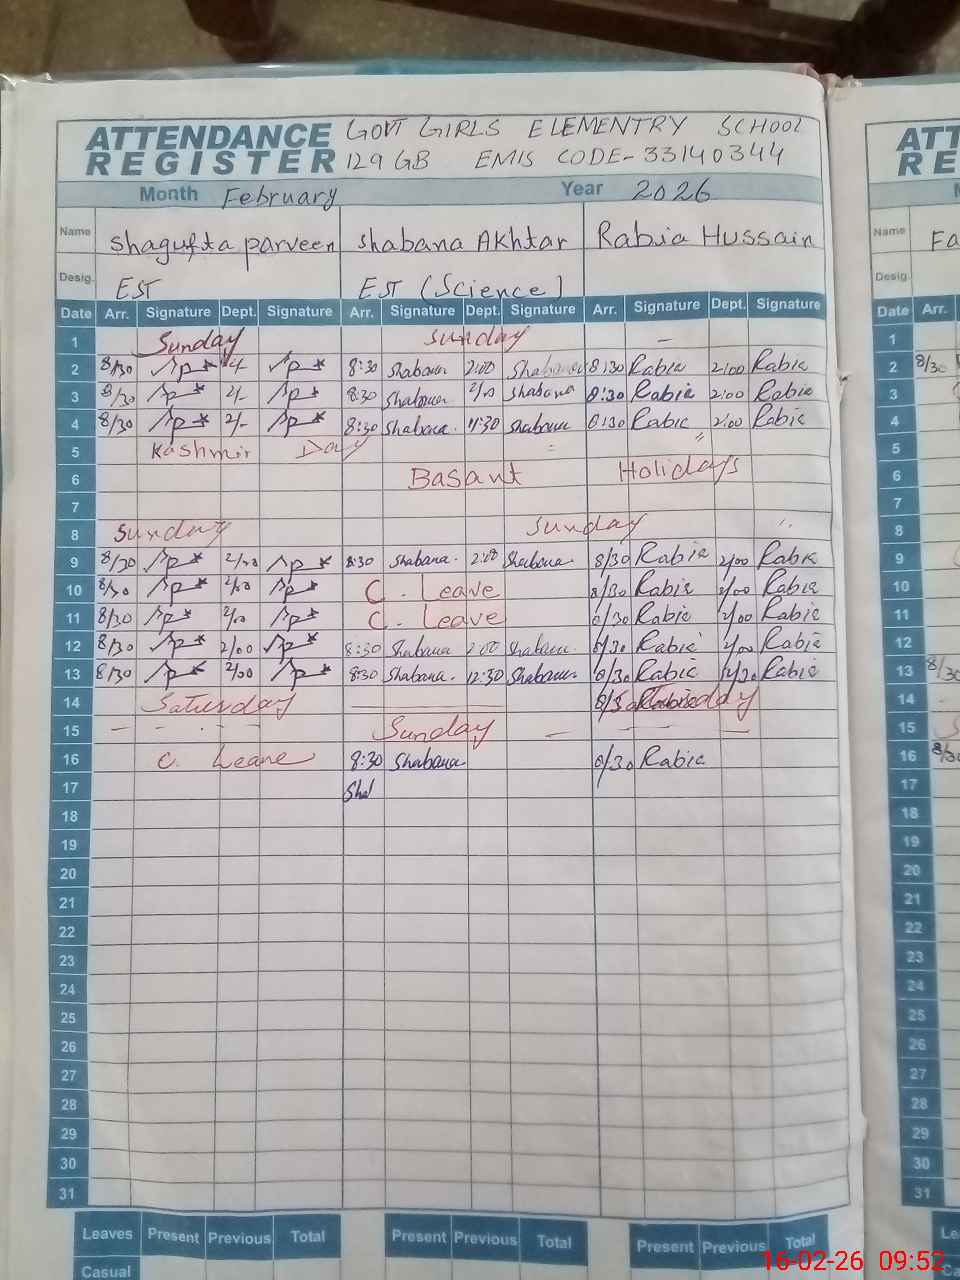 ATTENDANCE REGISTER GOVT GIRLS ELEMENTRY SCHOOL
129 GB EMIS CODE-33140344
Month February Year 2026
Name Shagufta parveen Shabana Akhtar Rabia Hussain
Desig. EST EST (Science)
Date Arr. Signature Dept. Signature Arr. Signature Dept. Signature Arr. Signature Dept. Signature
1 Sunday Sunday —
2 8/30 2/- 8:30 Shabana 2:00 Shabana 8:30 Rabia 2:00 Rabia
3 8/30 2/- 8:30 Shabana 2/00 Shabana 8:30 Rabia 2:00 Rabia
4 8/30 2/- 8:30 Shabana. 11:30 Shabana 8:30 Rabia 2:00 Rabia
5 Kashmir Day = "
6 Basant Holidays
7
8 Sunday Sunday
9 8/30 2/00 8:30 Shabana. 2:00 Shabana. 8/30 Rabia 2/00 Rabia
10 8/30 2/00 C. Leave 8/30 Rabia 2/00 Rabia
11 8/30 2/00 C. Leave 8/30 Rabia 2/00 Rabia
12 8/30 2/00 8:30 Shabana 2:00 Shabana. 8/30 Rabia 2/00 Rabia
13 8/30 2/00 8:30 Shabana. 12:30 Shabana 8/30 Rabia Rabia
14 Saturday
15 — — . — Sunday — — —
16 C. Leave 8:30 Shabana 8/30 Rabia
17 Sha
18
19
20
21
22
23
24
25
26
27
28
29
30
31
Leaves Present Previous Total Present Previous Total Present Previous Total
Casual
Name Fa
Desig.
Date Arr.
1
2 8/30
3
4
5
6
7
8
9
10
11
12
13 8/30
14
15
16 8/30
17
18
19
20
21
22
23
24
25
26
27
28
29
30
31
16-02-26 09:52